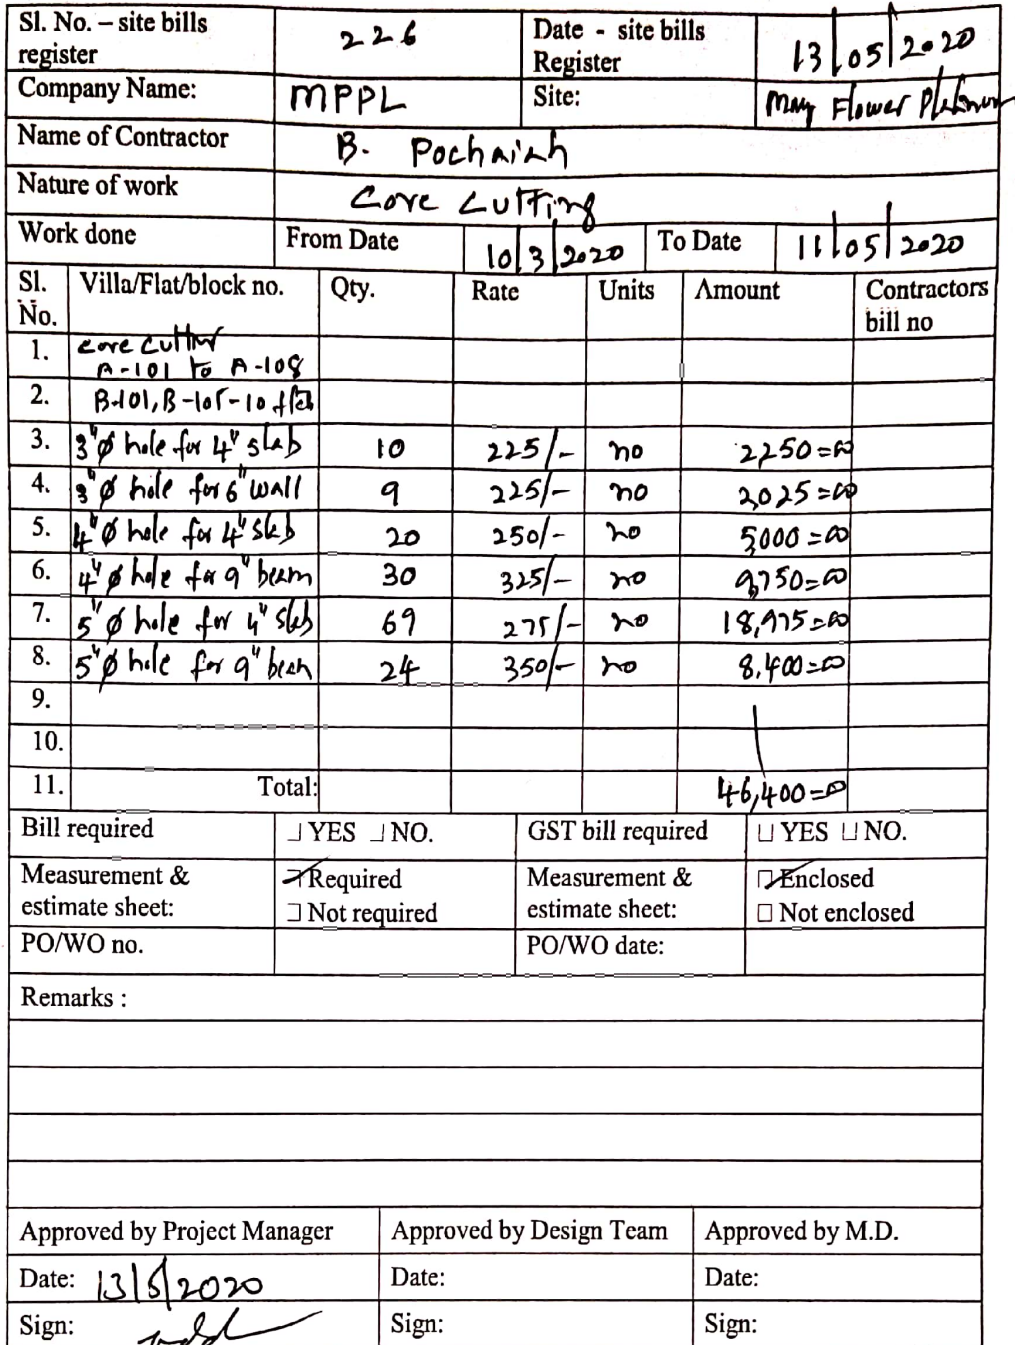 Sl. No. – site bills register 226 Date - site bills Register 13/05/2020
Company Name: MPPL Site: May Flower Platinum
Name of Contractor B. Pochaiah
Nature of work Core Cutting
Work done From Date 10/3/2020 To Date 11/05/2020
Sl. No. Villa/Flat/block no. Qty. Rate Units Amount Contractors bill no
1. Core Cutting A-101 to A-108
2. B-101, B-105-10 flat
3. 3"ø hole for 4" slab 10 225/- no 2250=00
4. 3"ø hole for 6" wall 9 225/- no 2,025=00
5. 4"ø hole for 4" slab 20 250/- no 5000=00
6. 4"ø hole for 9" beam 30 325/- no 9,750=00
7. 5"ø hole for 4" slab 69 275/- no 18,975=00
8. 5"ø hole for 9" beam 24 350/- no 8,400=00
9.
10.
11. Total: 46,400=00
Bill required YES NO. GST bill required YES NO.
Measurement & estimate sheet: Required Not required Measurement & estimate sheet: Enclosed Not enclosed
PO/WO no. PO/WO date:
Remarks :
Approved by Project Manager Approved by Design Team Approved by M.D.
Date: 13/5/2020 Date: Date:
Sign: Sign: Sign: